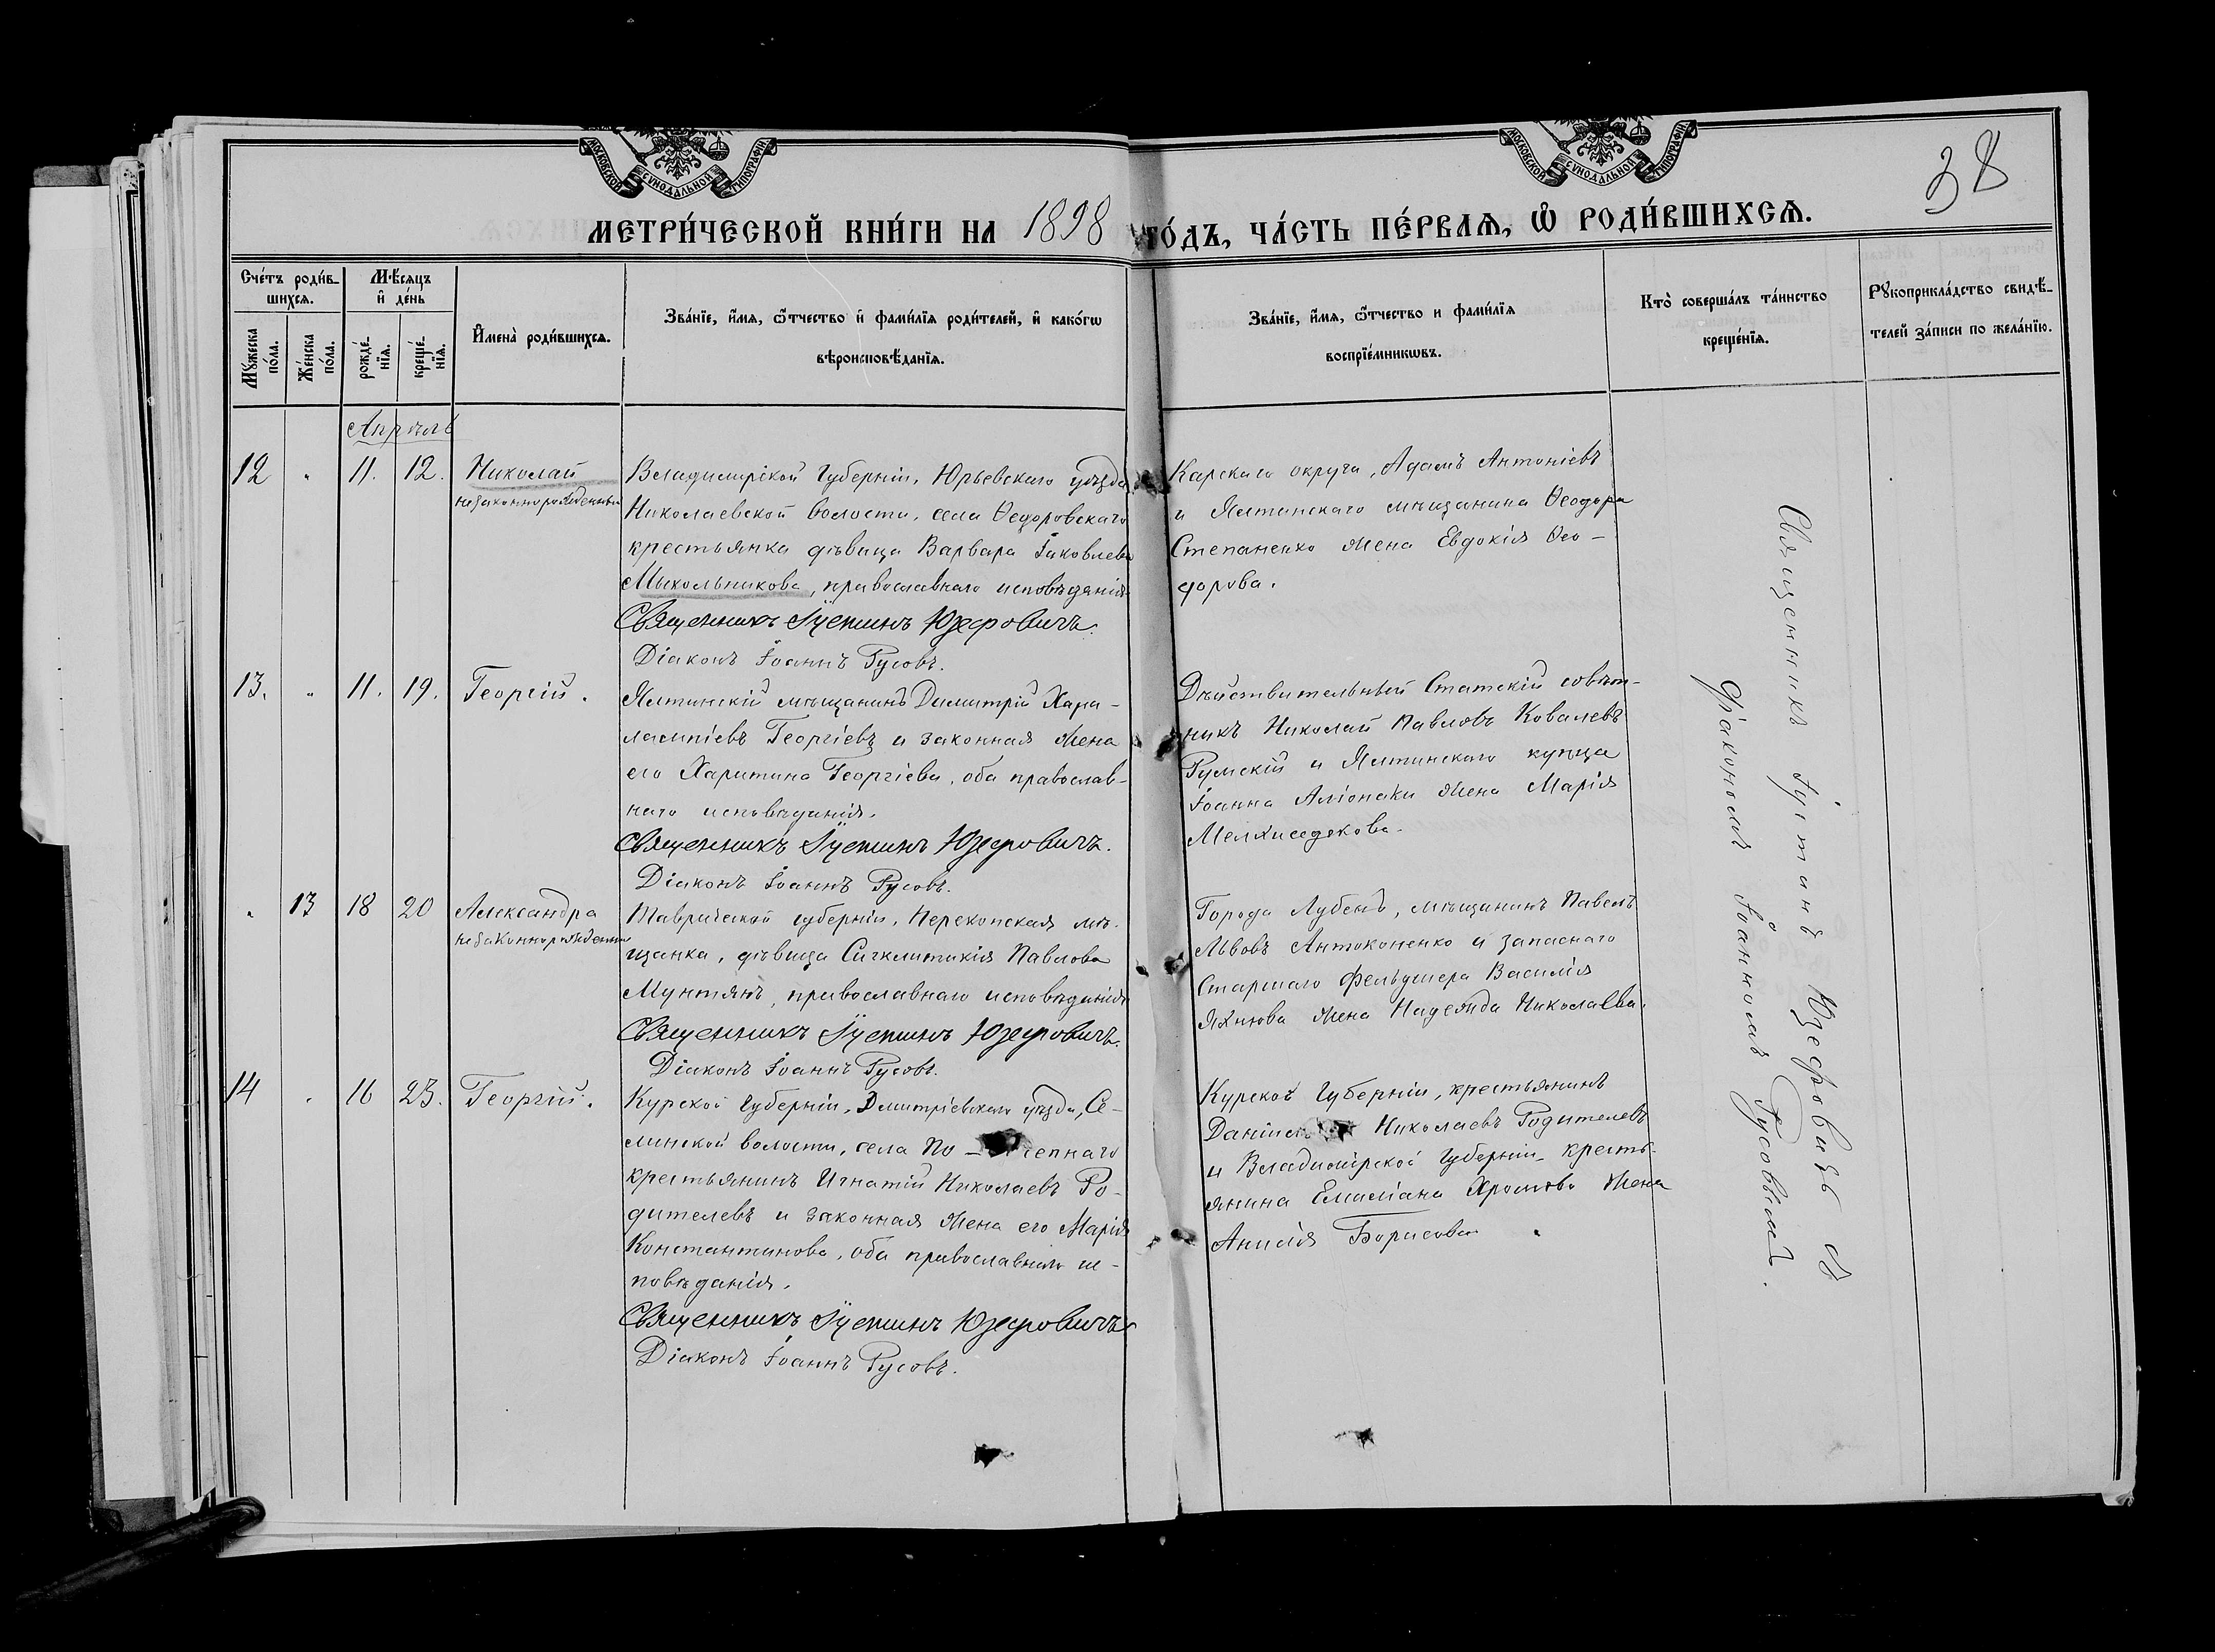 МОСКОВСКОЙ СѴНОДАЛЬНОЙ ТИПОГРАФІИ
МОСКОВСКОЙ СѴНОДАЛЬНОЙ ТИПОГРАФІИ
38
МЕТРИ́ЧЕСКОЙ КНИ́ГИ НА 1898 ГО́ДЪ, ЧА́СТЬ ПЕ́РВАѦ, Ѡ҆ РОДИ́ВШИХСѦ.
Сче́тъ роди́в-
шихсѧ.
Мꙋ́жеска по́ла.
Же́нска по́ла.
Мѣ́сѧцъ
и҆ де́нь
рожде́-
нїѧ.
креще́-
нїѧ.
И҆мена̀ роди́вшихсѧ.
Зва́нїе, и҆́мѧ, ѻ҆́тчество и҆ фами́лїѧ роди́телей, и҆ како́гѡ
вѣроисповѣ́данїѧ.
Зва́нїе, и҆́мѧ, ѻ҆́тчество и фами́лїѧ
воспрїе́мникѡвъ.
Кто̀ соверша́лъ та́инство
креще́нїѧ.
Рꙋкоприкла́дство свидѣ́-
телей за́писи по жела́нїю.
Апрѣль
12 " 11. 12. Николай
незаконнорожденный
Владимірской Губерніи, Юрьевскаго уѣзда,
Николаевской волости, села Ѳедоровскаго
крестьянка дѣвица Варвара Іаковлева
Мыхольникова, православнаго исповѣданія
Священникъ Іустинъ Юзефовичъ.
Діаконъ Іоаннъ Русовъ.
Карскаго округа, Адамъ Антоніевъ
и Ялтинскаго мѣщанина Ѳеодора
Степаненко жена Евдокія Ѳео-
дорова.
13. " 11. 19. Георгій.
Ялтинскій мѣщанинъ Димитрій Хара-
лампіевъ Георгіевъ и законная жена
его Харитина Георгіева, оба православ-
наго исповѣданія.
Священникъ Іустинъ Юзефовичъ.
Діаконъ Іоаннъ Русовъ.
Дѣйствительный Статскій совѣт-
никъ Николай Павловъ Ковалевъ
Румскій и Ялтинскаго купца
Іоанна Аліонаки жена Марія
Мелхиседекова.
" 13 18 20 Александра
незаконнорожденная
Таврической губерніи, Перекопская мѣ-
щанка, дѣвица Сигклитикія Павлова
Мунтянъ, православнаго исповѣданія
Священникъ Іустинъ Юзефовичъ.
Діаконъ Іоаннъ Русовъ.
Города Лубенъ, мѣщанинъ Павелъ
Львовъ Антоконенко и запаснаго
Старшаго фельдшера Василія
Яхнова жена Надежда Николаева.
14 " 16 23. Георгій.
Курской Губерніи, Дмитріевскаго уѣзда, Се-
линской волости, села По-
крестьянинъ Игнатій Николаевъ Ро-
дителевъ и законная жена его Марія
Константинова, оба православнаго ис-
повѣданія.
Священникъ Іустинъ Юзефовичъ
Діаконъ Іоаннъ Русовъ.
Курской Губерніи, крестьянинъ
Даніилъ Николаевъ Родителевъ
и Владимірской Губерніи крестъ-
янина Емиліана Хромова жена
Анисія Борисова.
Священникъ Іустинъ Юзефовичъ съ
діакономъ Іоанномъ Русовымъ.